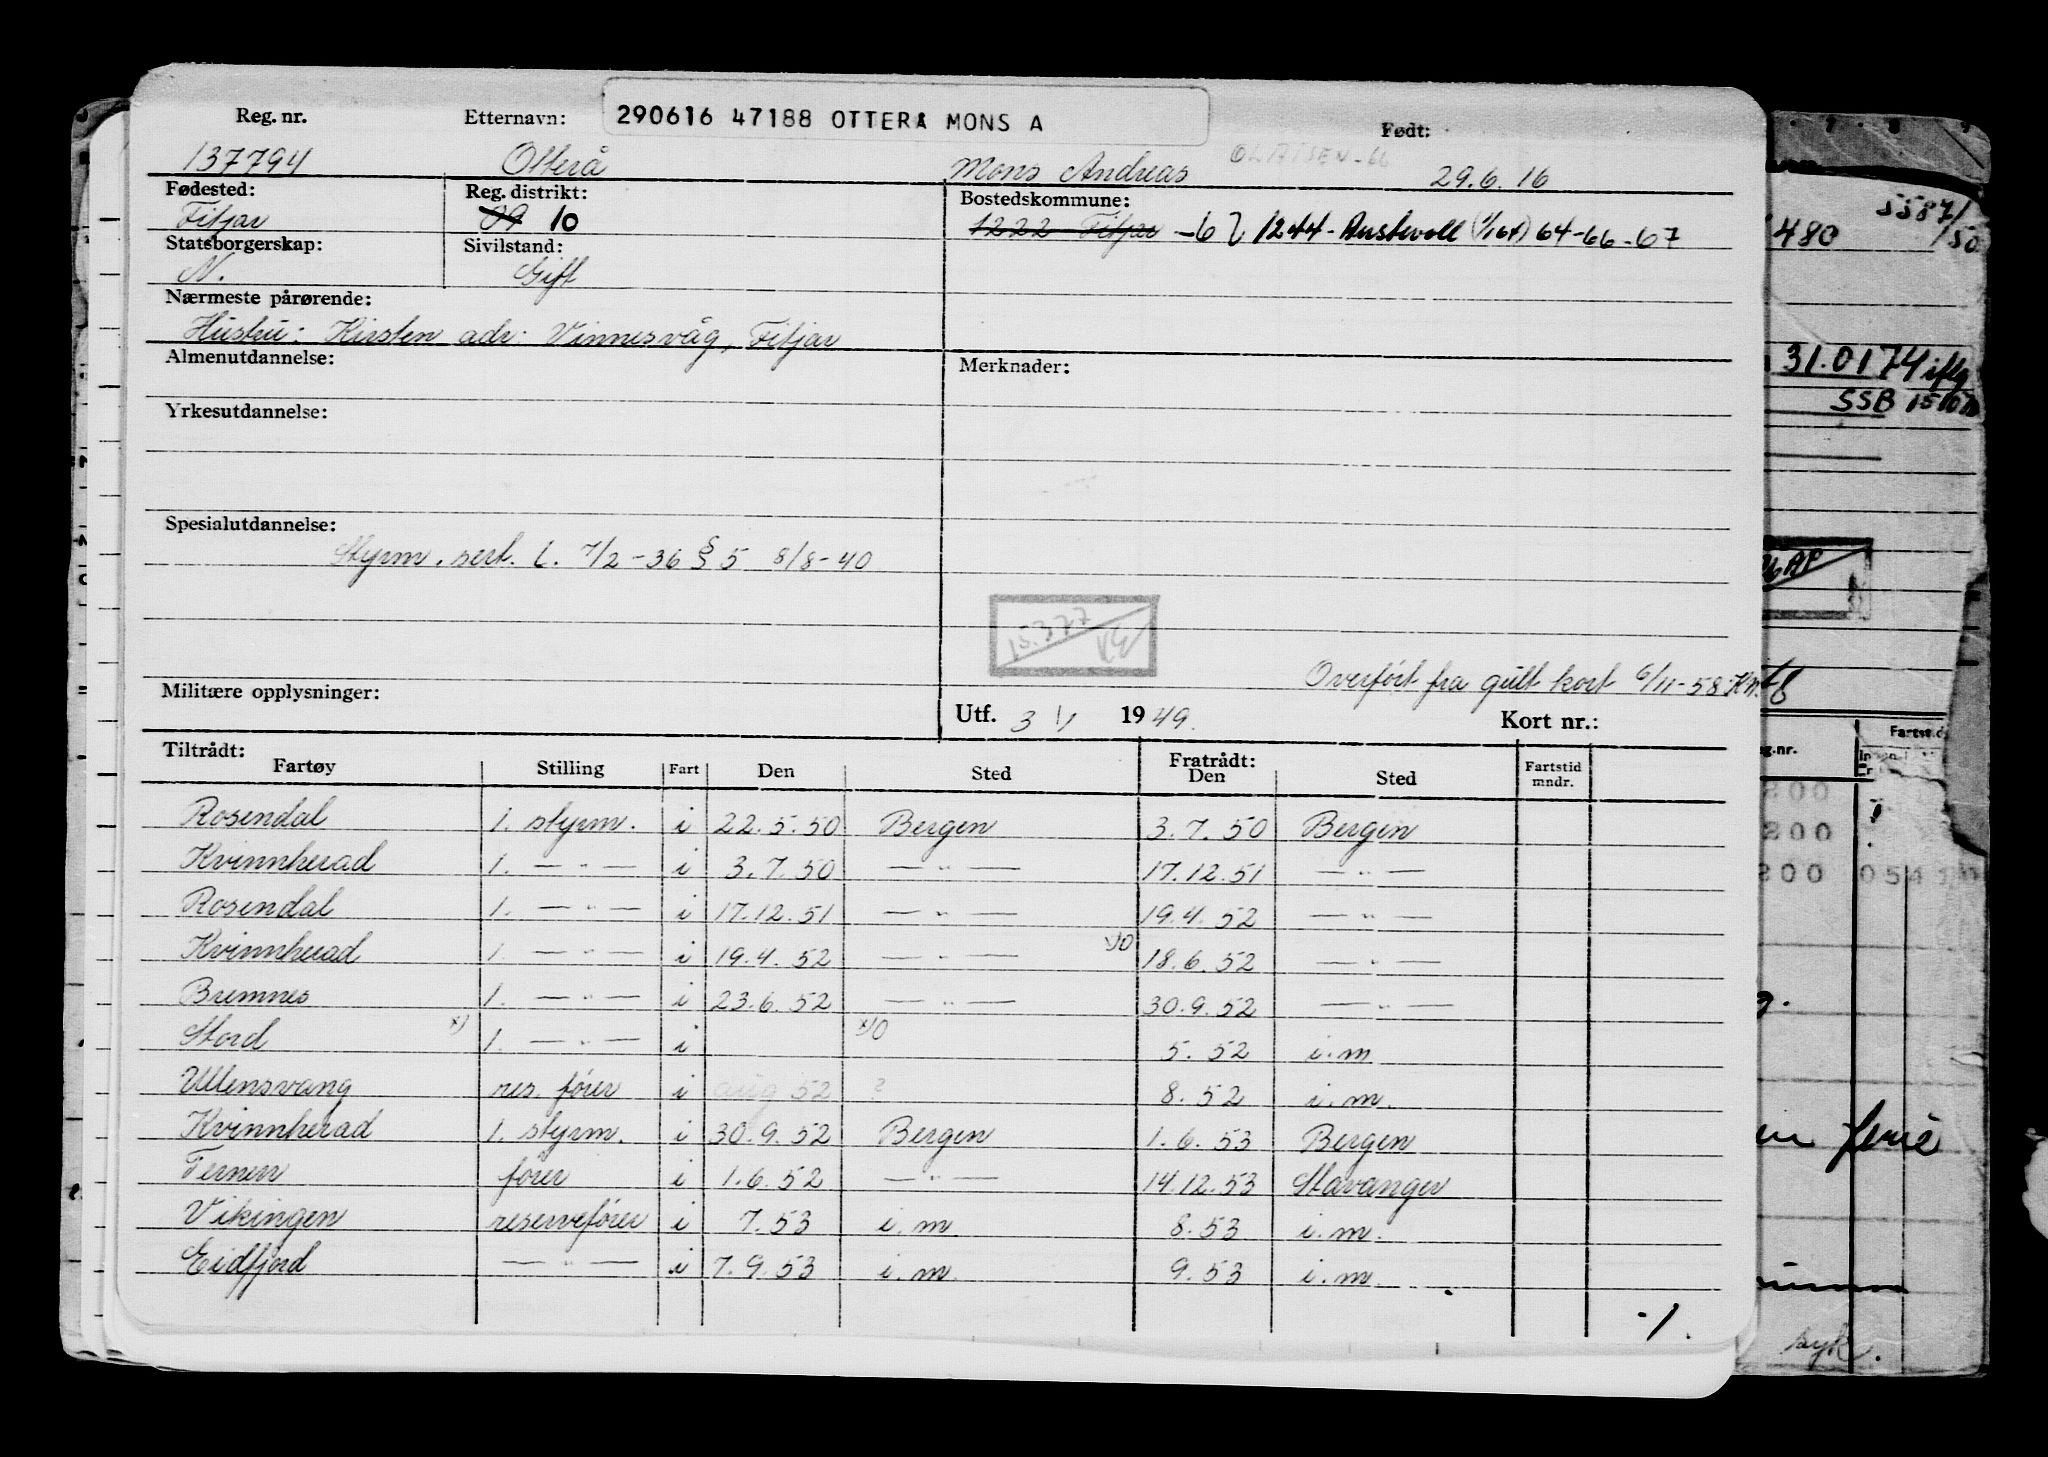 Reg. nr. Etternavn: 290616 47188 OTTERÅ MONS A Født:
137794 Otterå Mons Andreas OLAISEN-66 29.6.16
Fødested: Reg. distrikt: Bostedskommune:
Fitjar 09 10 1222 Fitjar -62 1244-Austevoll (1/1 64) 64-66-67
Statsborgerskap: Sivilstand:
N. Gift
Nærmeste pårørende:
Hustru: Kirsten adr: Vinnesvåg, Fitjar
Almenutdannelse: Merknader:
Yrkesutdannelse:
Spesialutdannelse:
Styrm. sert. l. 7/2-36 § 5 8/8-40
15.3.77
Overført fra gult kort 6/11-58
Militære opplysninger: Utf. 3/1 1949. Kort nr.:
Tiltrådt: Fratrådt:
Fartøy Stilling Fart Den Sted Den Sted Fartstid mndr.
Rosendal 1. styrm. i 22.5.50 Bergen 3.7.50 Bergen
Kvinnherad 1. —"— i 3.7.50 —"— 17.12.51 —"—
Rosendal 1. —"— i 17.12.51 —"— 19.4.52 —"—
Kvinnherad 1. —"— i 19.4.52 —"— x)0 18.6.52 —"—
Bremnes 1. —"— i 23.6.52 —"— 30.9.52 —"—
Stord x) 1. —"— i x)0 5.52 i.m
Ullensvang res. fører i aug 52 ? 8.52 i.m.
Kvinnherad 1. styrm. i 30.9.52 Bergen 1.6.53 Bergen
Ternen fører i 1.6.52 —"— 14.12.53 Stavanger
Vikingen reservefører i 7.53 i.m 8.53 i.m.
Eidfjord —"— i 7.9.53 i.m. 9.53 i.m.
-1.
5587/50
480
31.0174 iflg
SSB
g.nr. Fartstid
800
800
800
en ferie
syk.